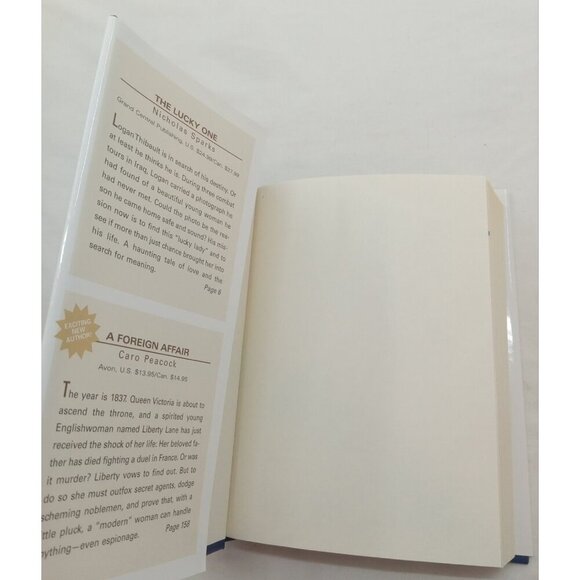 THE LUCKY ONE
Nicholas Sparks
Grand Central Publishing, U.S. $24.99/Can. $27.99
Logan Thibault is in search of his destiny. Or
at least he thinks he is. During three combat
tours in Iraq, Logan carried a photograph he
had found of a beautiful young woman he
had never met. Could the photo be the rea-
son he came home safe and sound? His mis-
sion now is to find this "lucky lady" and to
see if more than just chance brought her into
his life. A haunting tale of love and the
search for meaning.
Page 6
EXCITING
NEW
AUTHOR!
A FOREIGN AFFAIR
Caro Peacock
Avon, U.S. $13.95/Can. $14.95
The year is 1837. Queen Victoria is about to
ascend the throne, and a spirited young
Englishwoman named Liberty Lane has just
received the shock of her life: Her beloved fa-
ther has died fighting a duel in France. Or was
it murder? Liberty vows to find out. But to
do so she must outfox secret agents, dodge
scheming noblemen, and prove that, with a
little pluck, a "modern" woman can handle
nything—even espionage.
Page 158